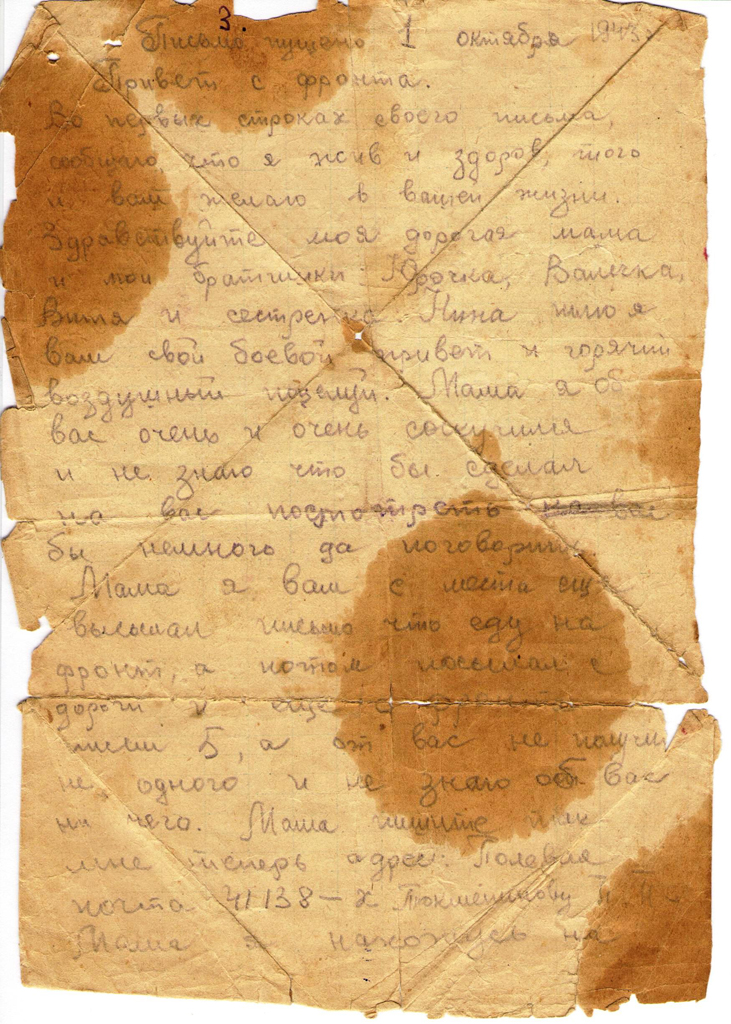 3.
Письмо пущено 1 октября 1943
Привет с фронта.
Во первых строках своего письма,
сообщаю, что я жив и здоров, того
и вам желаю в вашей жизни.
Здравствуйте моя дорогая мама
и мои братишки Юрочка, Валечка,
Витя и сестренка Нина шлю я
вам свой боевой привет и горячий
воздушный поцелуй. Мама я об
вас очень и очень соскучился
и не знаю что бы сделал
на вас посмотреть на вас
бы немного да поговорить.
Мама я вам с места еще
высылал письмо что еду на
фронт, а потом посылал с
дороги и еще с фронта
писем 5, а от вас не получил
не одного и не знаю об вас
ни чего. Мама пишите
мне теперь адрес: Полевая
почта 41138-х П.П.
Мама я нахожусь на